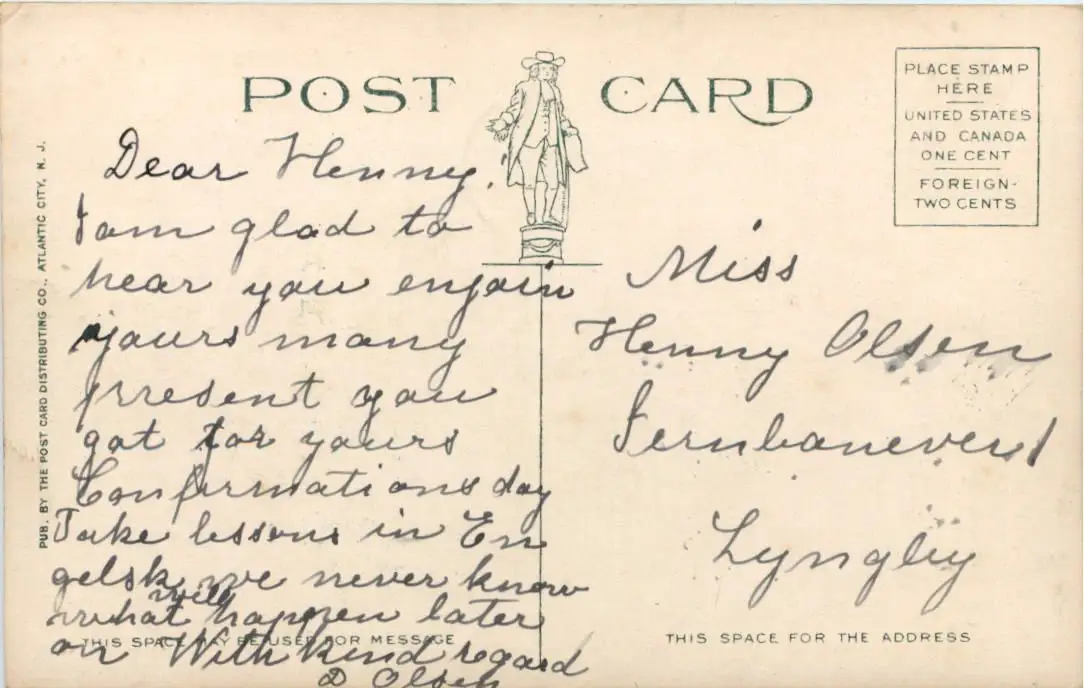 POST CARD
PLACE STAMP
HERE
UNITED STATES
AND CANADA
ONE CENT
FOREIGN-
TWO CENTS
PUB. BY THE POST CARD DISTRIBUTING CO., ATLANTIC CITY, N. J.
Dear Henny.
I am glad to
hear you enjoin
yours many
present you
got for yours
Confirmations day
Take lessons in En
gelsk we never know
what will happen later
on With kind regard
D Olsen
THIS SPACE MAY BE USED FOR MESSAGE
Miss
Henny Olsen
Jernbanevei 1
Lyngby
THIS SPACE FOR THE ADDRESS